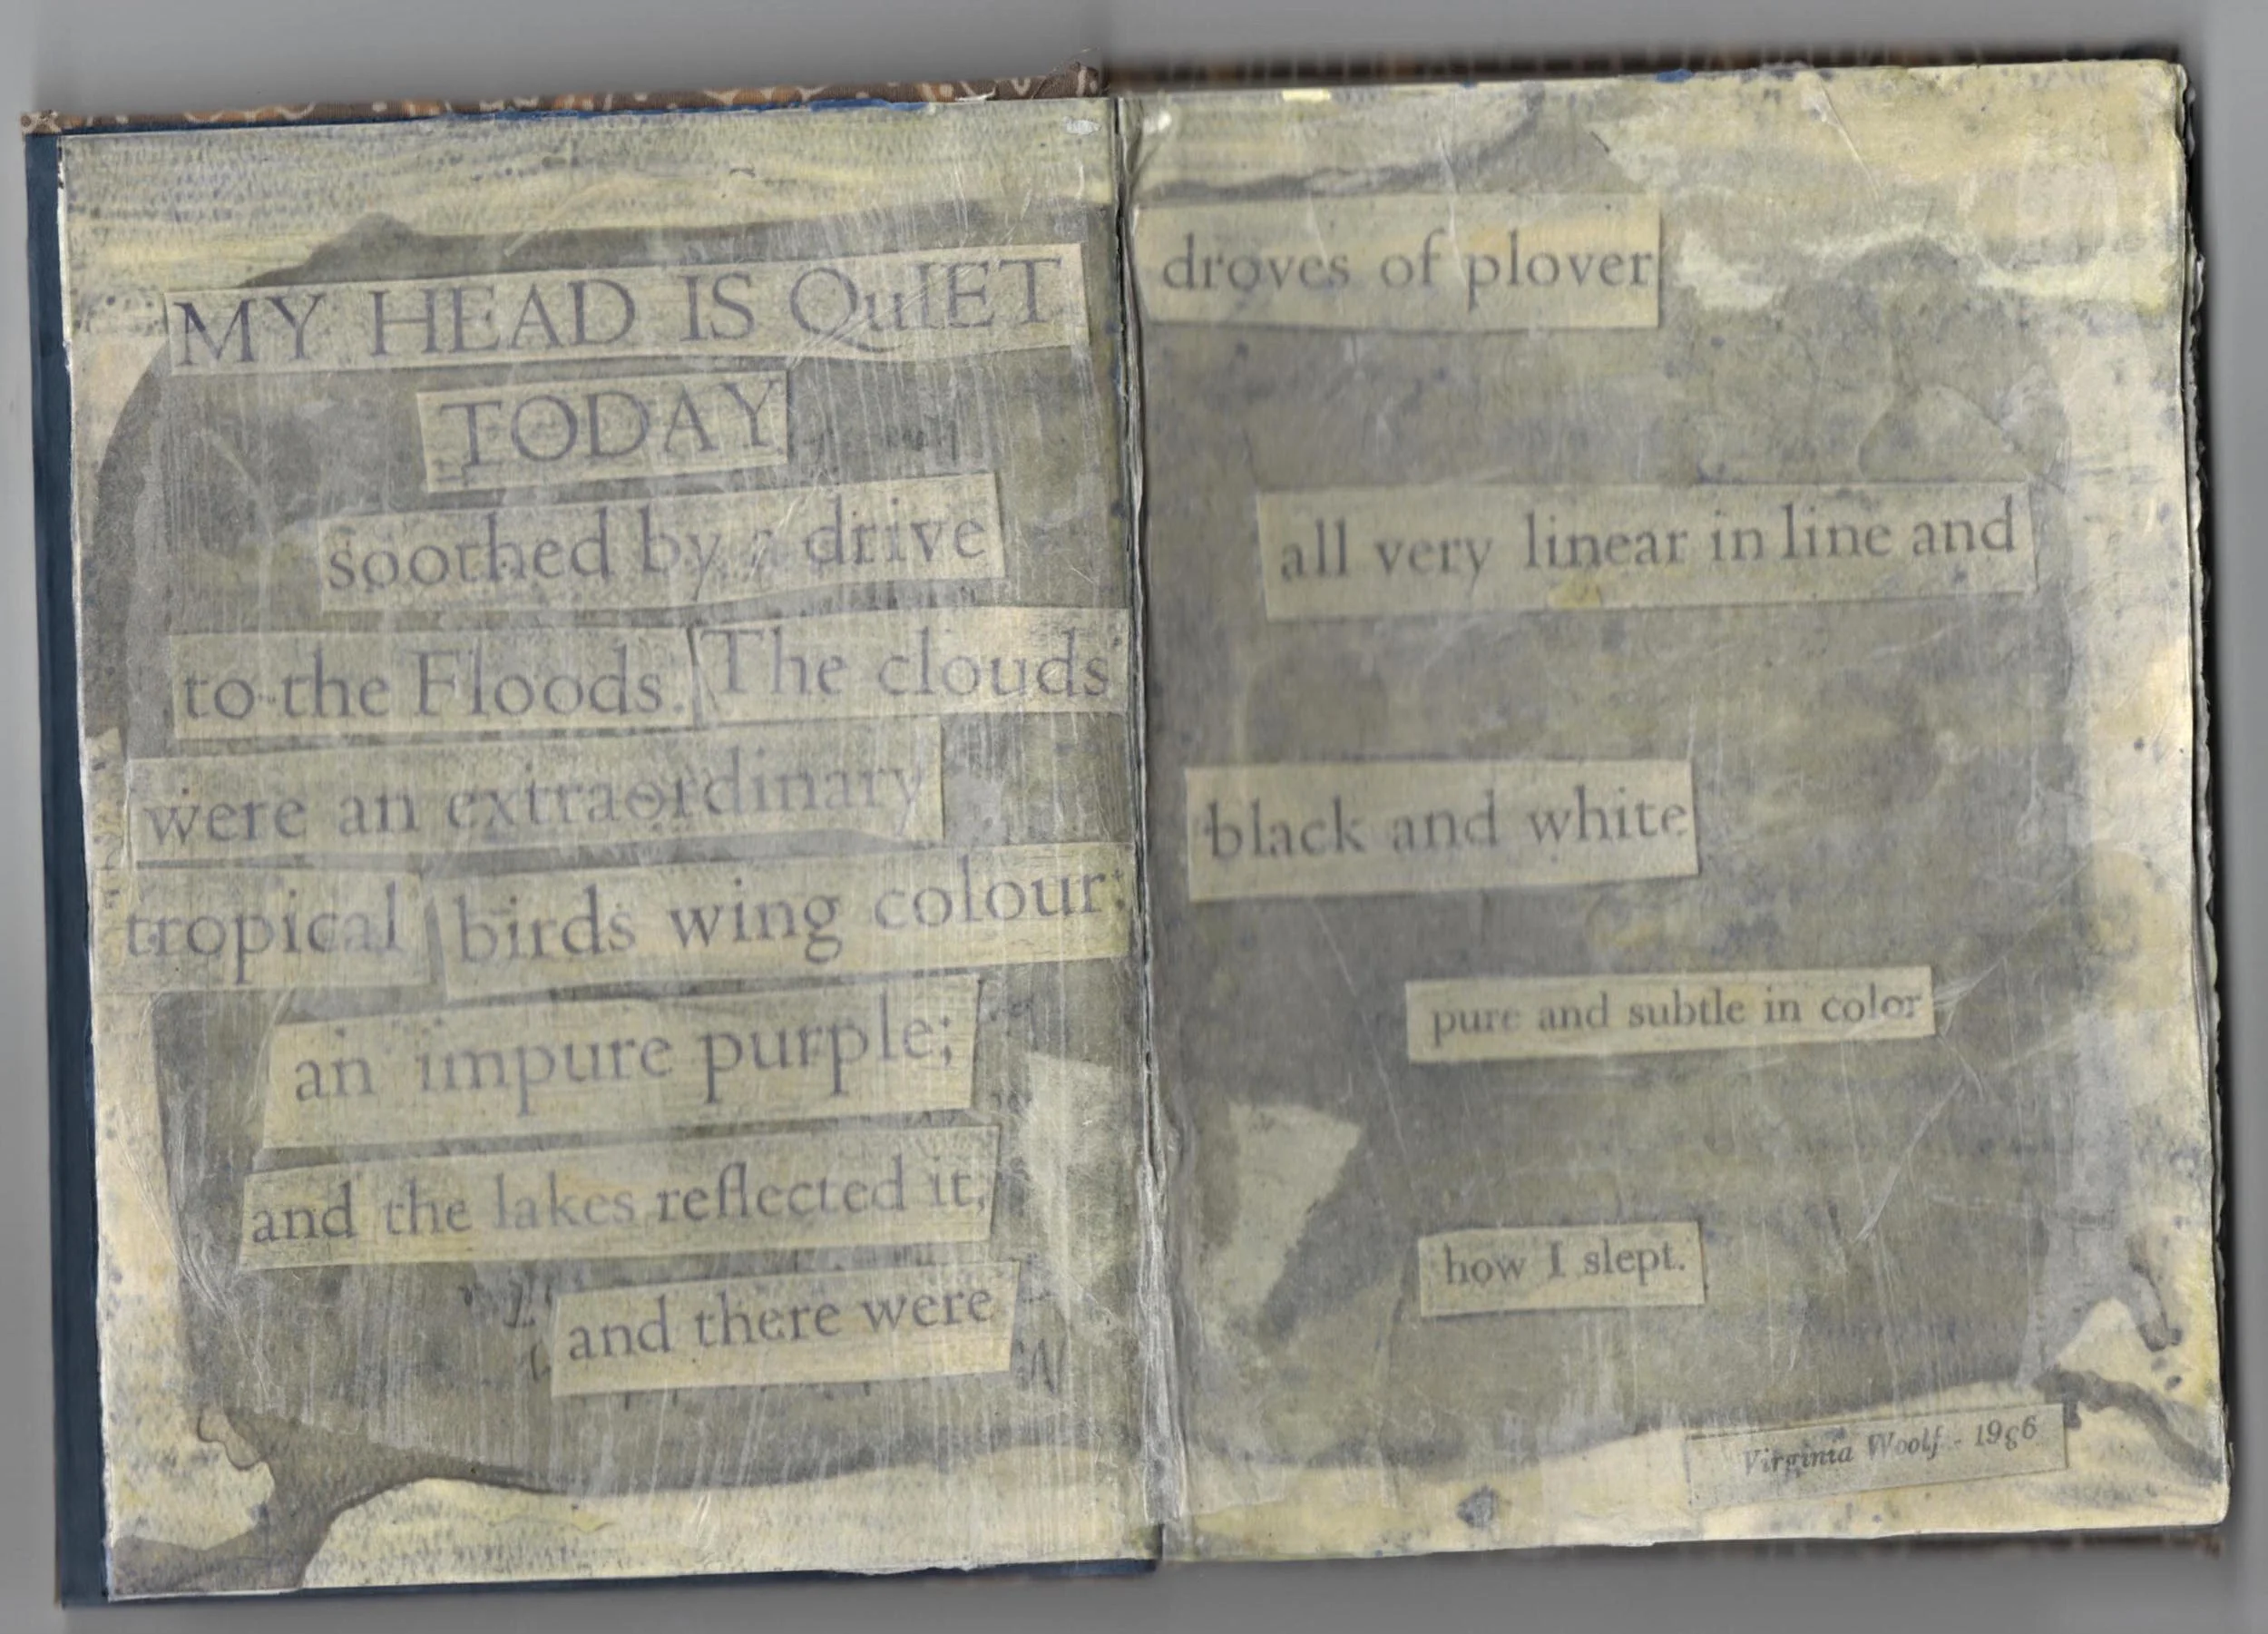 MY HEAD IS QuIET
TODAY
soothed by a drive
to the Floods. The clouds
were an extraordinary
tropical birds wing colour:
an impure purple;
and the lakes reflected it,
and there were
droves of plover
all very linear in line and
black and white
pure and subtle in color
how I slept.
Virginia Woolf - 19g6